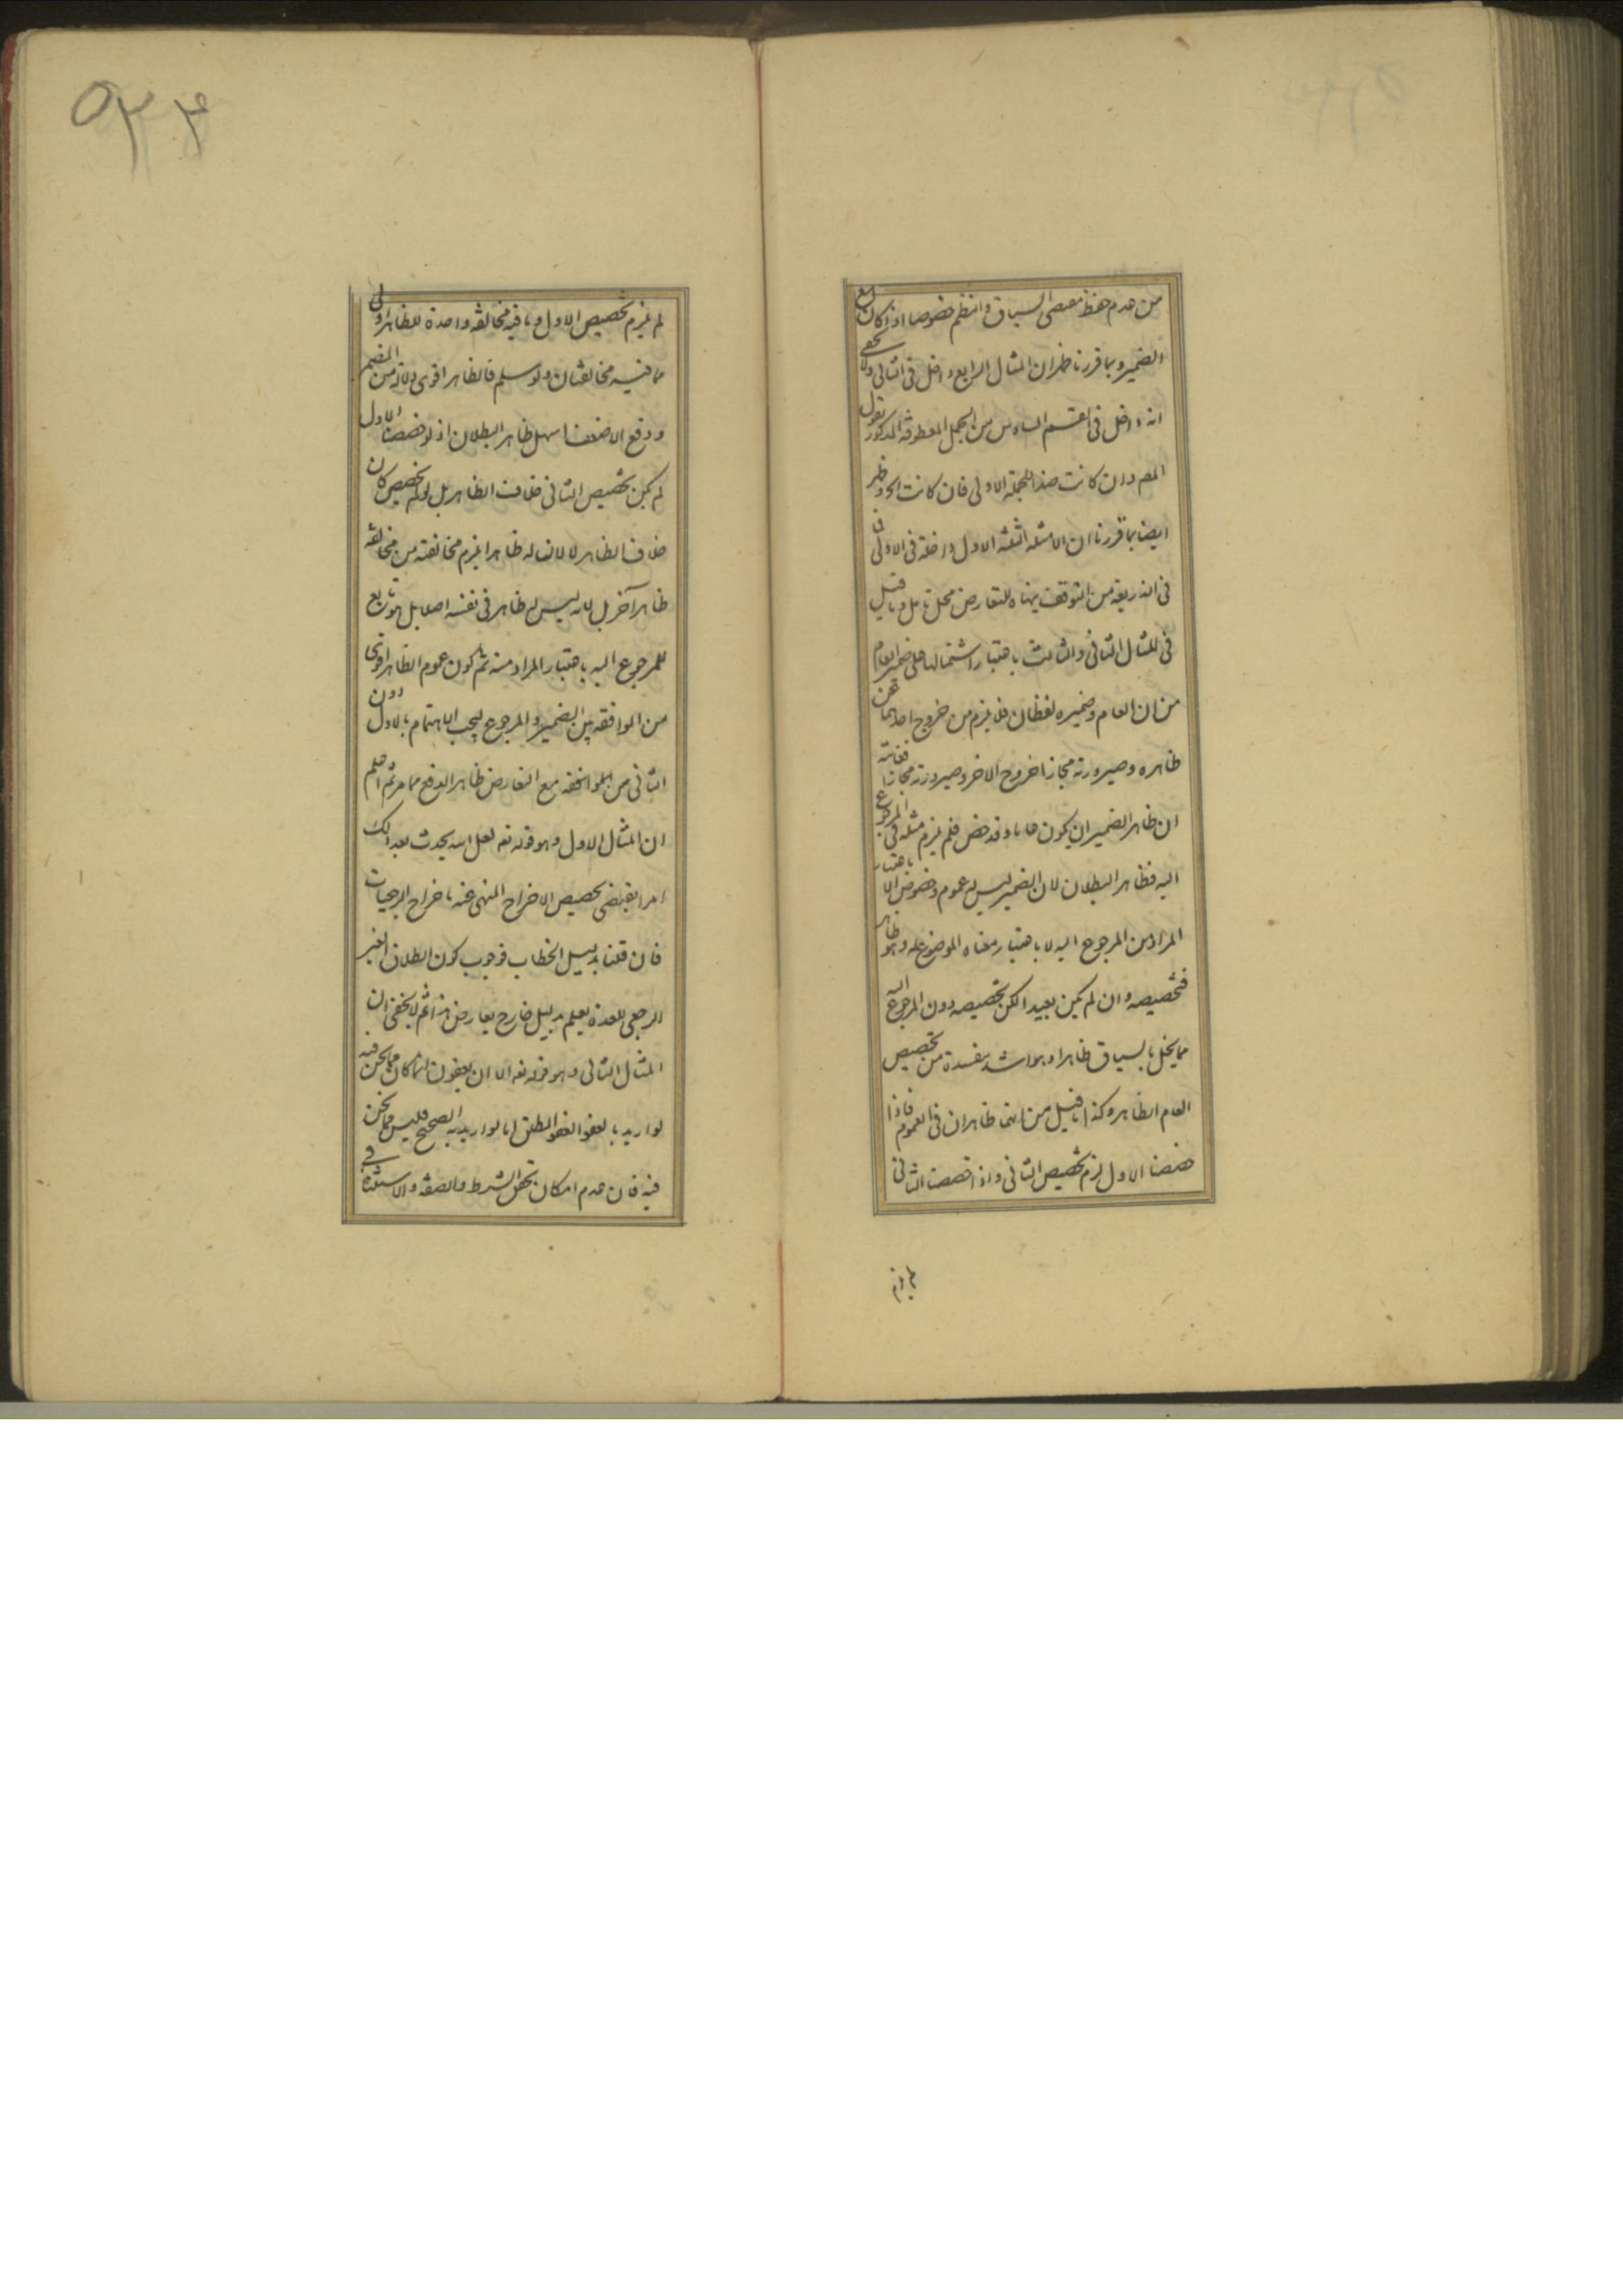 من عدم حفظ مقتضى السياق والنظم خصوصا اذا كان مع
الضمير وبما قررنا ظهر ان المثال الرابع داخل فى الثانى ولا يخفى
انه داخل فى القسم السادس من الجمل المعطوفة المذكور بقول
المص وان كانت ضد الجملة الاولى فان كانت الخ وظهر
ايضا بما قررنا ان الامثلة الثلثة الاول داخلة فى الاولى
فى الذريعة من التوقف هنا للتعارض محل تامل وما قيل
فى المثال الثانى والثالث باعتبار اشتمالها على ضمير العام
من ان العام وضميره لفظان فلا يلزم من خروج احدهما عن
ظاهره وصيرورته مجازا خروج الاخر وصيرورته مجازا
ان ظاهر الضمير ان يكون عاما وقد خص فلم يلزم مثله فى المرجوع
اليه فظاهر البطلان لان الضمير ليس له عموم وخصوص الا باعتبار
المراد من المرجوع اليه لا باعتبار معناه الموضوع له وهو ظاهر
فتخصيصه وان لم يكن بعيدا لكن تخصيصه دون المرجوع اليه
مما يخل بالسياق ظاهرا وهو اشد مفسدة من تخصيص
العام الظاهر وكذا ما قيل من انهما ظاهران فى العموم فاذا
خصصنا الاول لزم تخصيص الثانى واذا خصصنا الثانى
لم يلزم
٥٣٤
لم يلزم تخصيص الاول وما فيه مخالفة واحدة للظاهر اولى
مما فيه مخالفتان ولو سلم فالظاهر اقوى دلالة من المضمر
ودفع الاضعف اسهل ظاهر البطلان اذ لو خصصنا الاول
لم يكن تخصيص الثانى خلاف الظاهر بل لو لم يخصص كان
خلاف الظاهر لا لان له ظاهرا يلزم مخالفته من مخالفة
ظاهر آخر بل لانه ليس له ظاهر فى نفسه اصلا بل هو تابع
للمرجوع اليه باعتبار المراد منه ثم كون عموم الظاهر اقوى
من الموافقة بين الضمير والمرجوع ليجب الاهتمام بالاول دون
الثانى من الموافقة مع التعارض ظاهر الدفع مما مر ثم اعلم
ان المثال الاول وهو قوله تعه لعل الله يحدث بعد ذلك
امرا يقتضى تخصيص الاخراج المنهى عنه باخراج الرجعيات
فان قلنا بدليل الخطاب فوجوب كون الطلاق الغير
الرجعى للعدة يعلم بدليل خارج يعارض هذا ثم لا يخفى ان
المثال الثانى وهو قوله تعه الا ان يعفون انما كان مما نحن فيه
لو اريد بالعفو العفو المطلق اما لو اريد به الصحيح فليس مما نحن
فيه فان عدم امكان تحقق الشرط والصفة والاستثناء فى